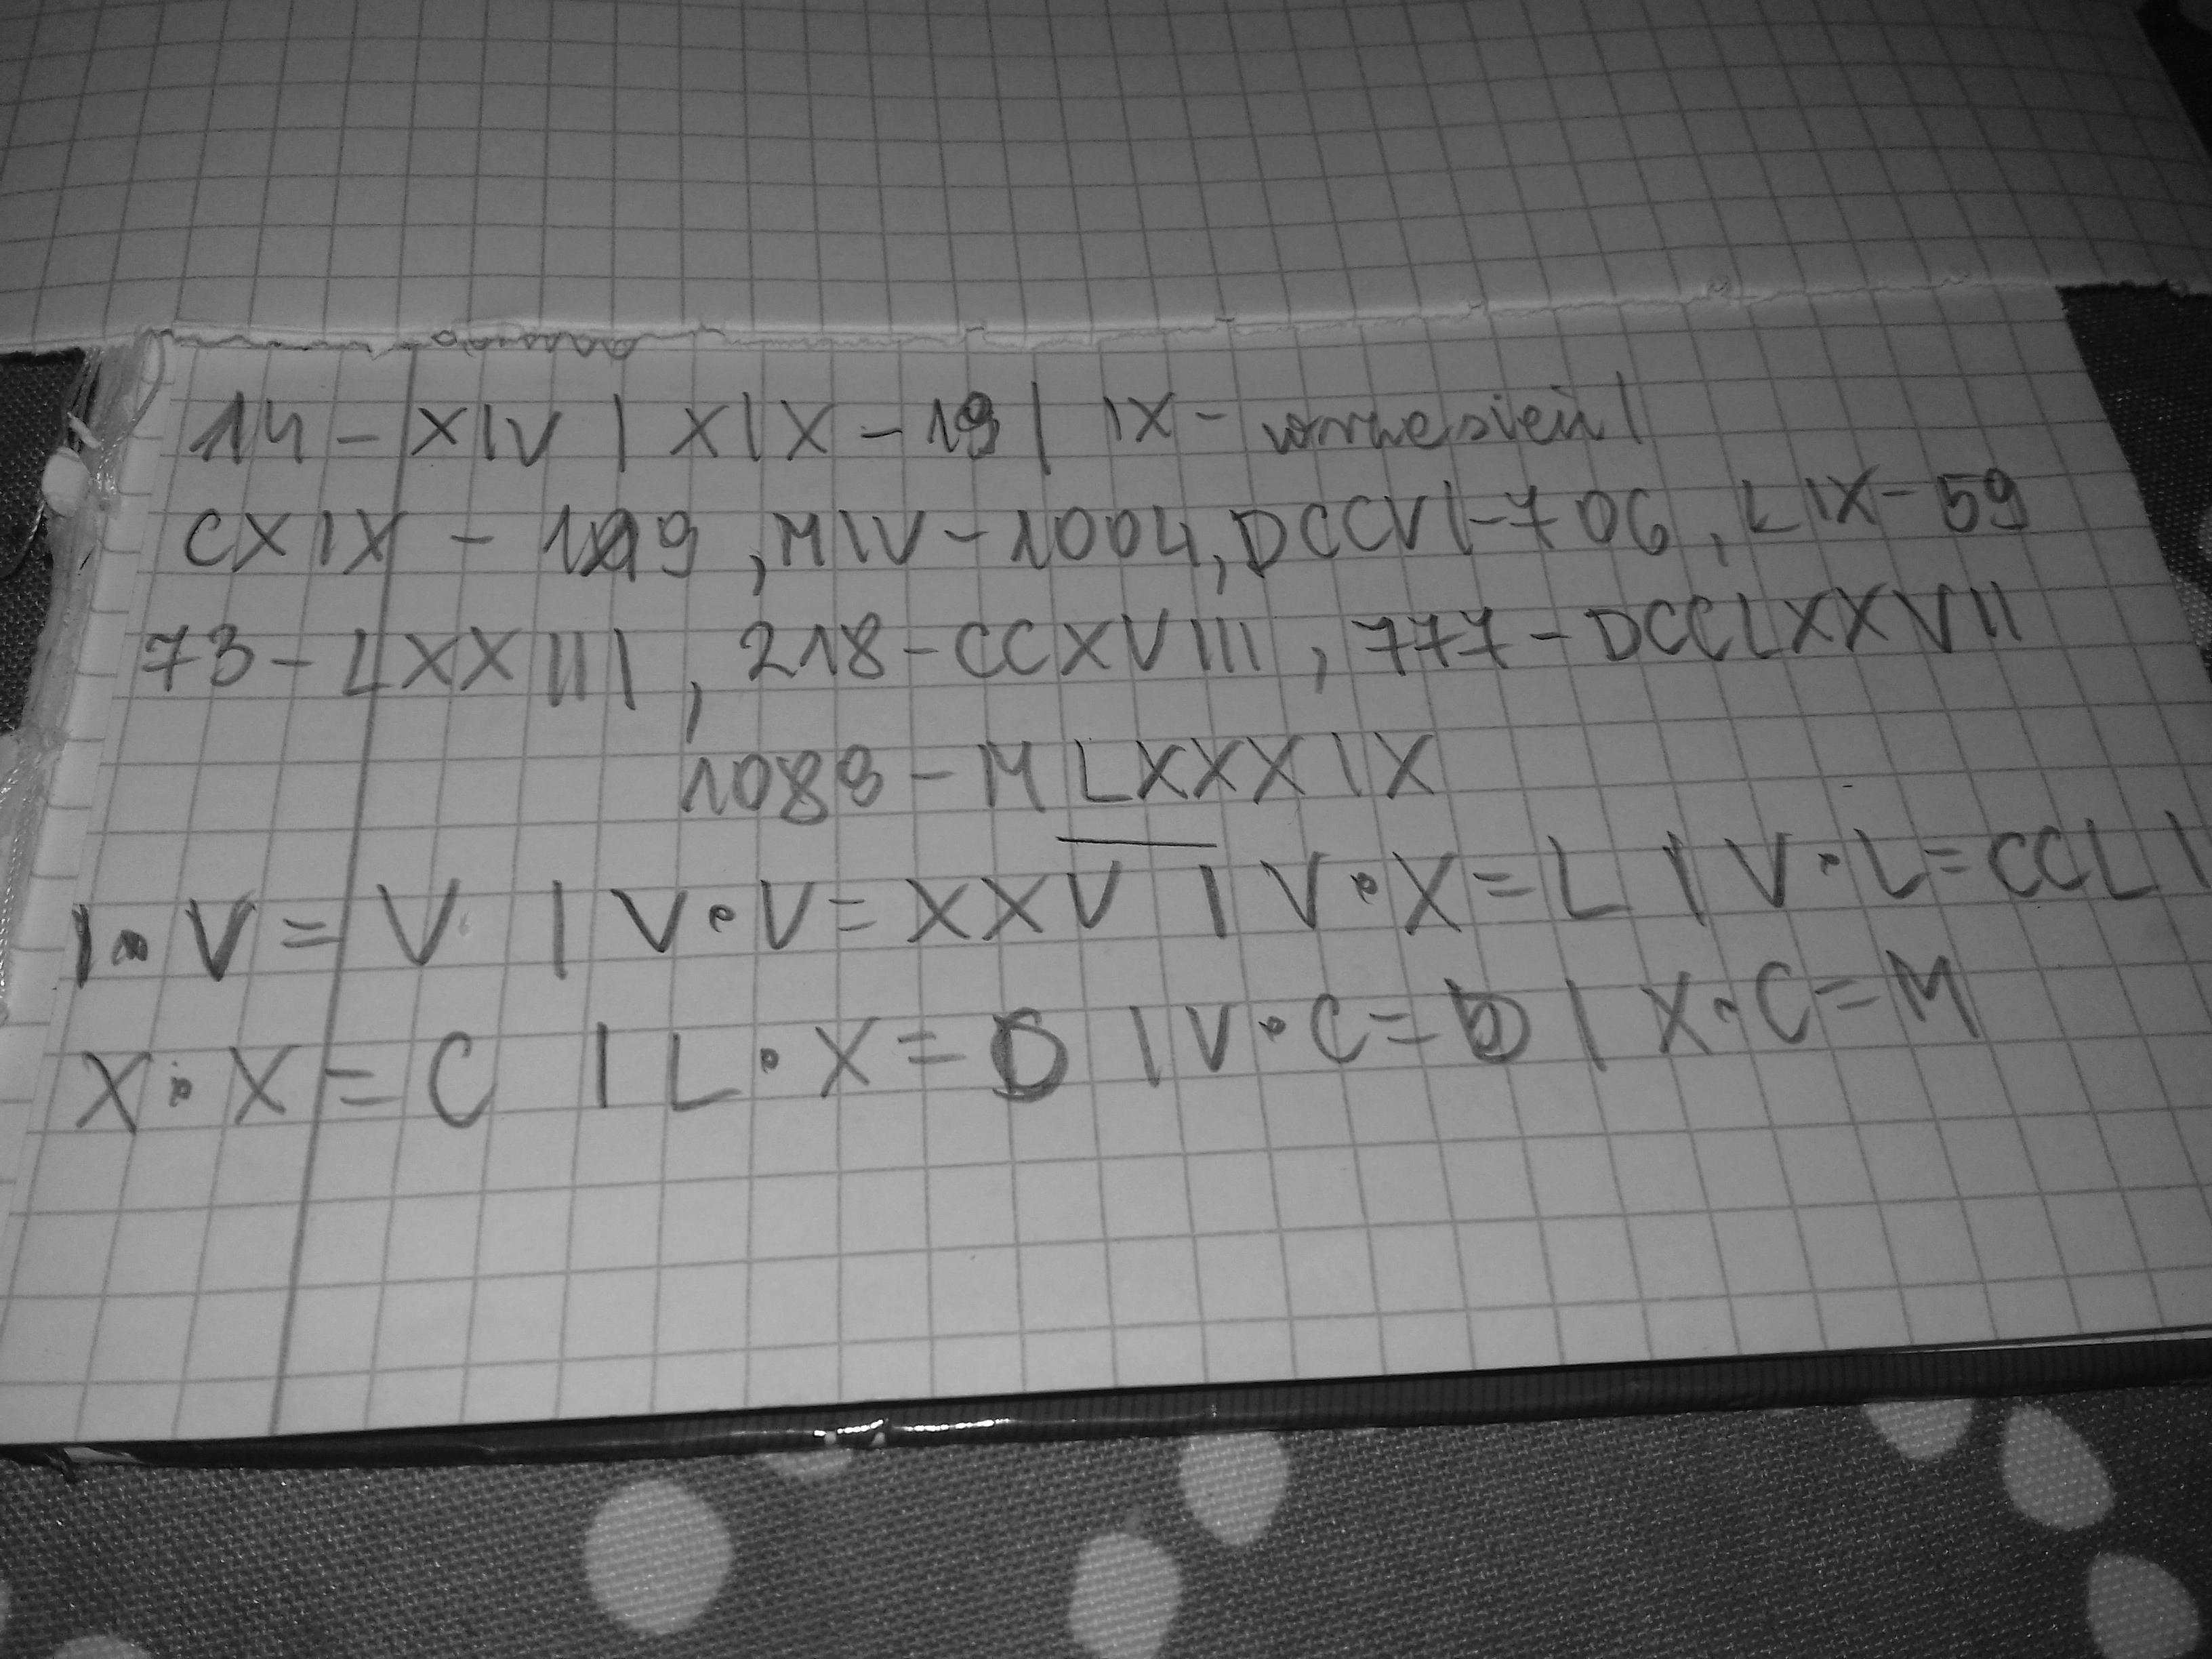 14 - XIV | XIX - 19 | IX - wrzesień |
CXIX - 119, MIV - 1004, DCCVI - 706, LIX - 59
73 - LXXIII, 218 - CCXVIII, 777 - DCCLXXVII
1089 - MLXXXIX
I • V = V | V • V = XXV | V • X = L | V • L = CCL |
X • X = C | L • X = D | V • C = D | X • C = M